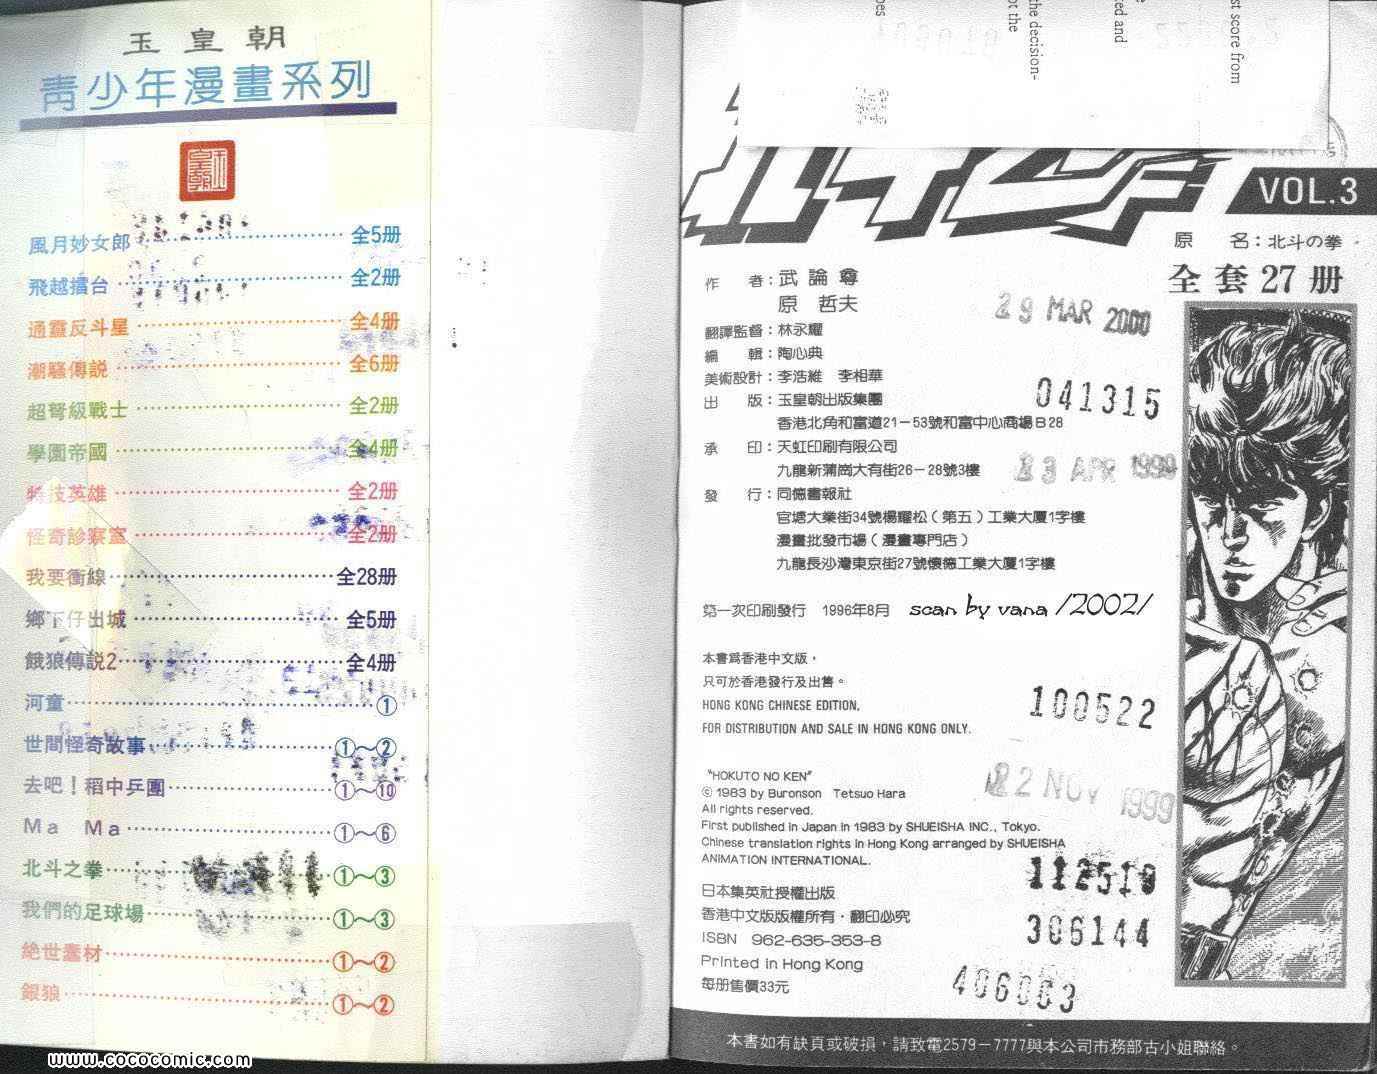 玉皇朝
青少年漫畫系列
風月妙女郎 全5册
飛越擂台 全2册
通靈反斗星 全4册
潮騷傳說 全6册
超弩級戰士 全2册
學園帝國 全4册
特技英雄 全2册
怪奇診察室 全2册
我要衝線 全28册
鄉下仔出城 全5册
餓狼傳說2 全4册
河童 ①
世間怪奇故事 ①~②
去吧！稻中乒團 ①~⑩
Ma Ma ①~⑥
北斗之拳 ①~③
我們的足球場 ①~③
絕世蠢材 ①~②
銀狼 ①~②
www.cococomic.com
the decision-
ot the
red and
st score from
VOL.3
原 名：北斗の拳
全套27册
作 者：武論尊
原 哲夫
翻譯監督：林永耀
編 輯：陶心典
美術設計：李浩維 李相華
出 版：玉皇朝出版集團
香港北角和富道21-53號和富中心商場B28
承 印：天虹印刷有限公司
九龍新蒲崗大有街26-28號3樓
發 行：同德書報社
官塘大業街34號楊耀松（第五）工業大廈1字樓
漫畫批發市場（漫畫專門店）
九龍長沙灣東京街27號懷德工業大廈1字樓
第一次印刷發行 1996年8月 scan by vana /2002/
本書為香港中文版，
只可於香港發行及出售。
HONG KONG CHINESE EDITION,
FOR DISTRIBUTION AND SALE IN HONG KONG ONLY.
"HOKUTO NO KEN"
© 1983 by Buronson Tetsuo Hara
All rights reserved.
First published in Japan in 1983 by SHUEISHA INC., Tokyo.
Chinese translation rights in Hong Kong arranged by SHUEISHA
ANIMATION INTERNATIONAL.
日本集英社授權出版
香港中文版版權所有・翻印必究
ISBN 962-635-353-8
Printed in Hong Kong
每册售價33元
29 MAR 2000
041315
23 APR 1999
100522
22 NOV 1999
112519
306144
406003
本書如有缺頁或破損，請致電2579-7777與本公司市務部古小姐聯絡。